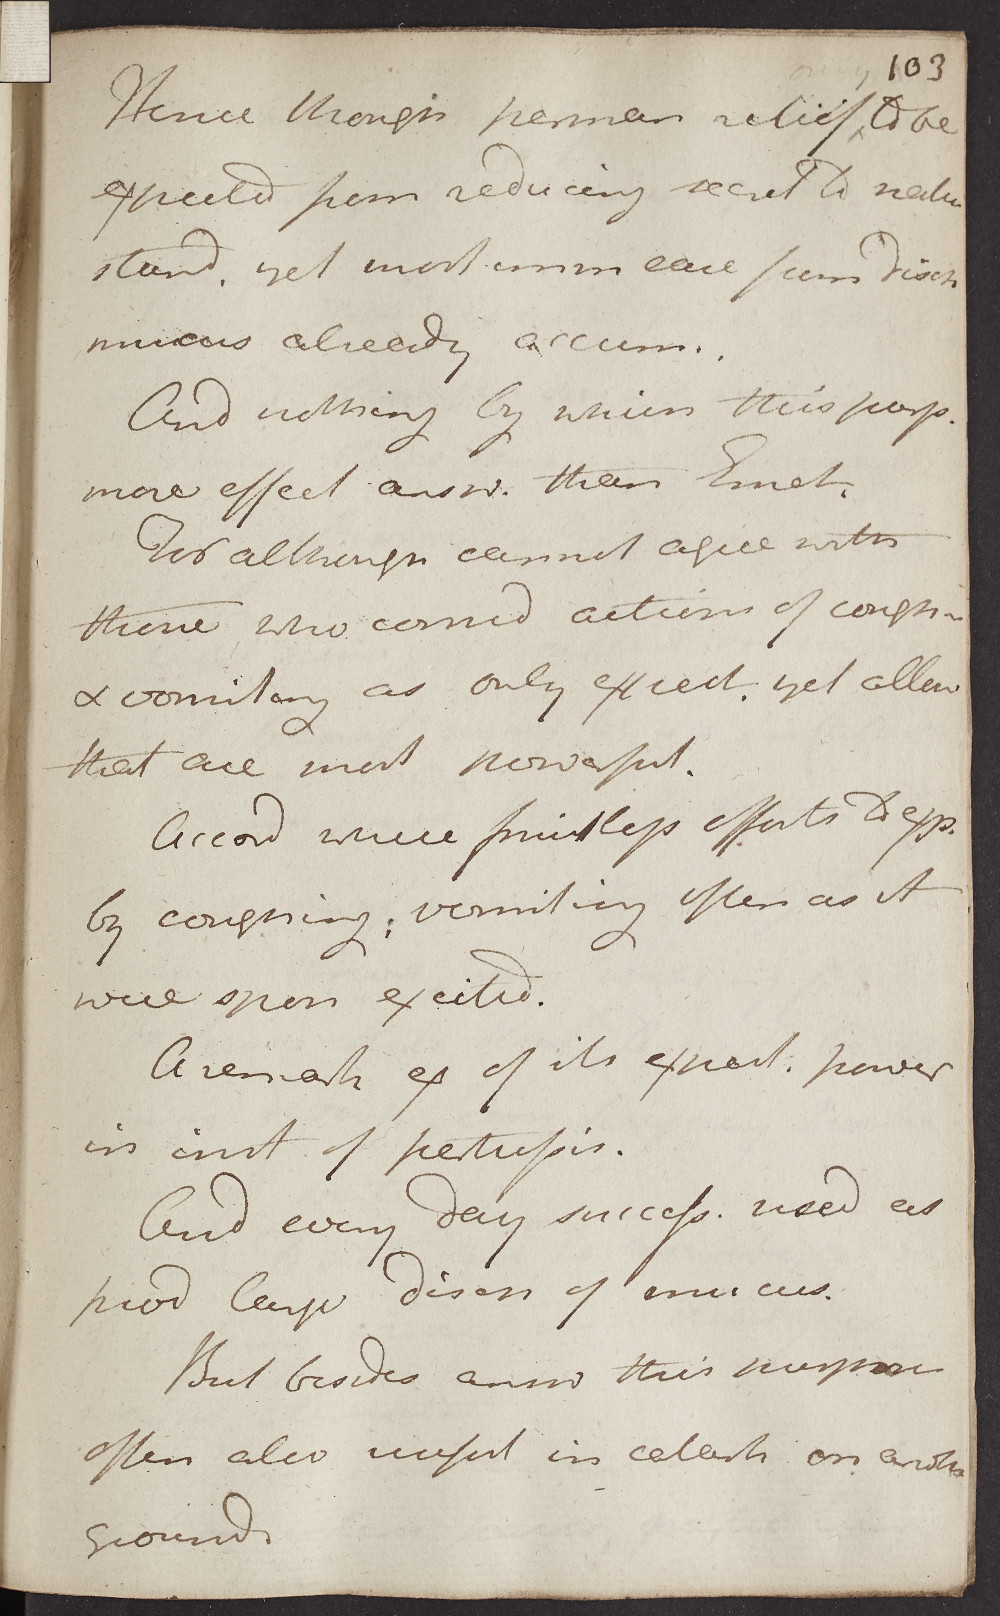 103
Hence though perman relief, only to be
expected from reducing secret to natu
stand, yet most imm ease from disch
mucus already accum.
And nothing by which this purp.
more effect answ. than Emet.
For although cannot agree with
those who consid actions of cough
& vomiting as only expect. yet allow
that are most powerful.
Accord where fruitless efforts to exp.
by coughing; vomiting often as it
were spon excited.
A remark ex of its expect. power
in inst of pertussis.
And every day success. used as
prod large disch of mucus.
But besides answ this purpose
often also useful in catarh on anoth
ground.